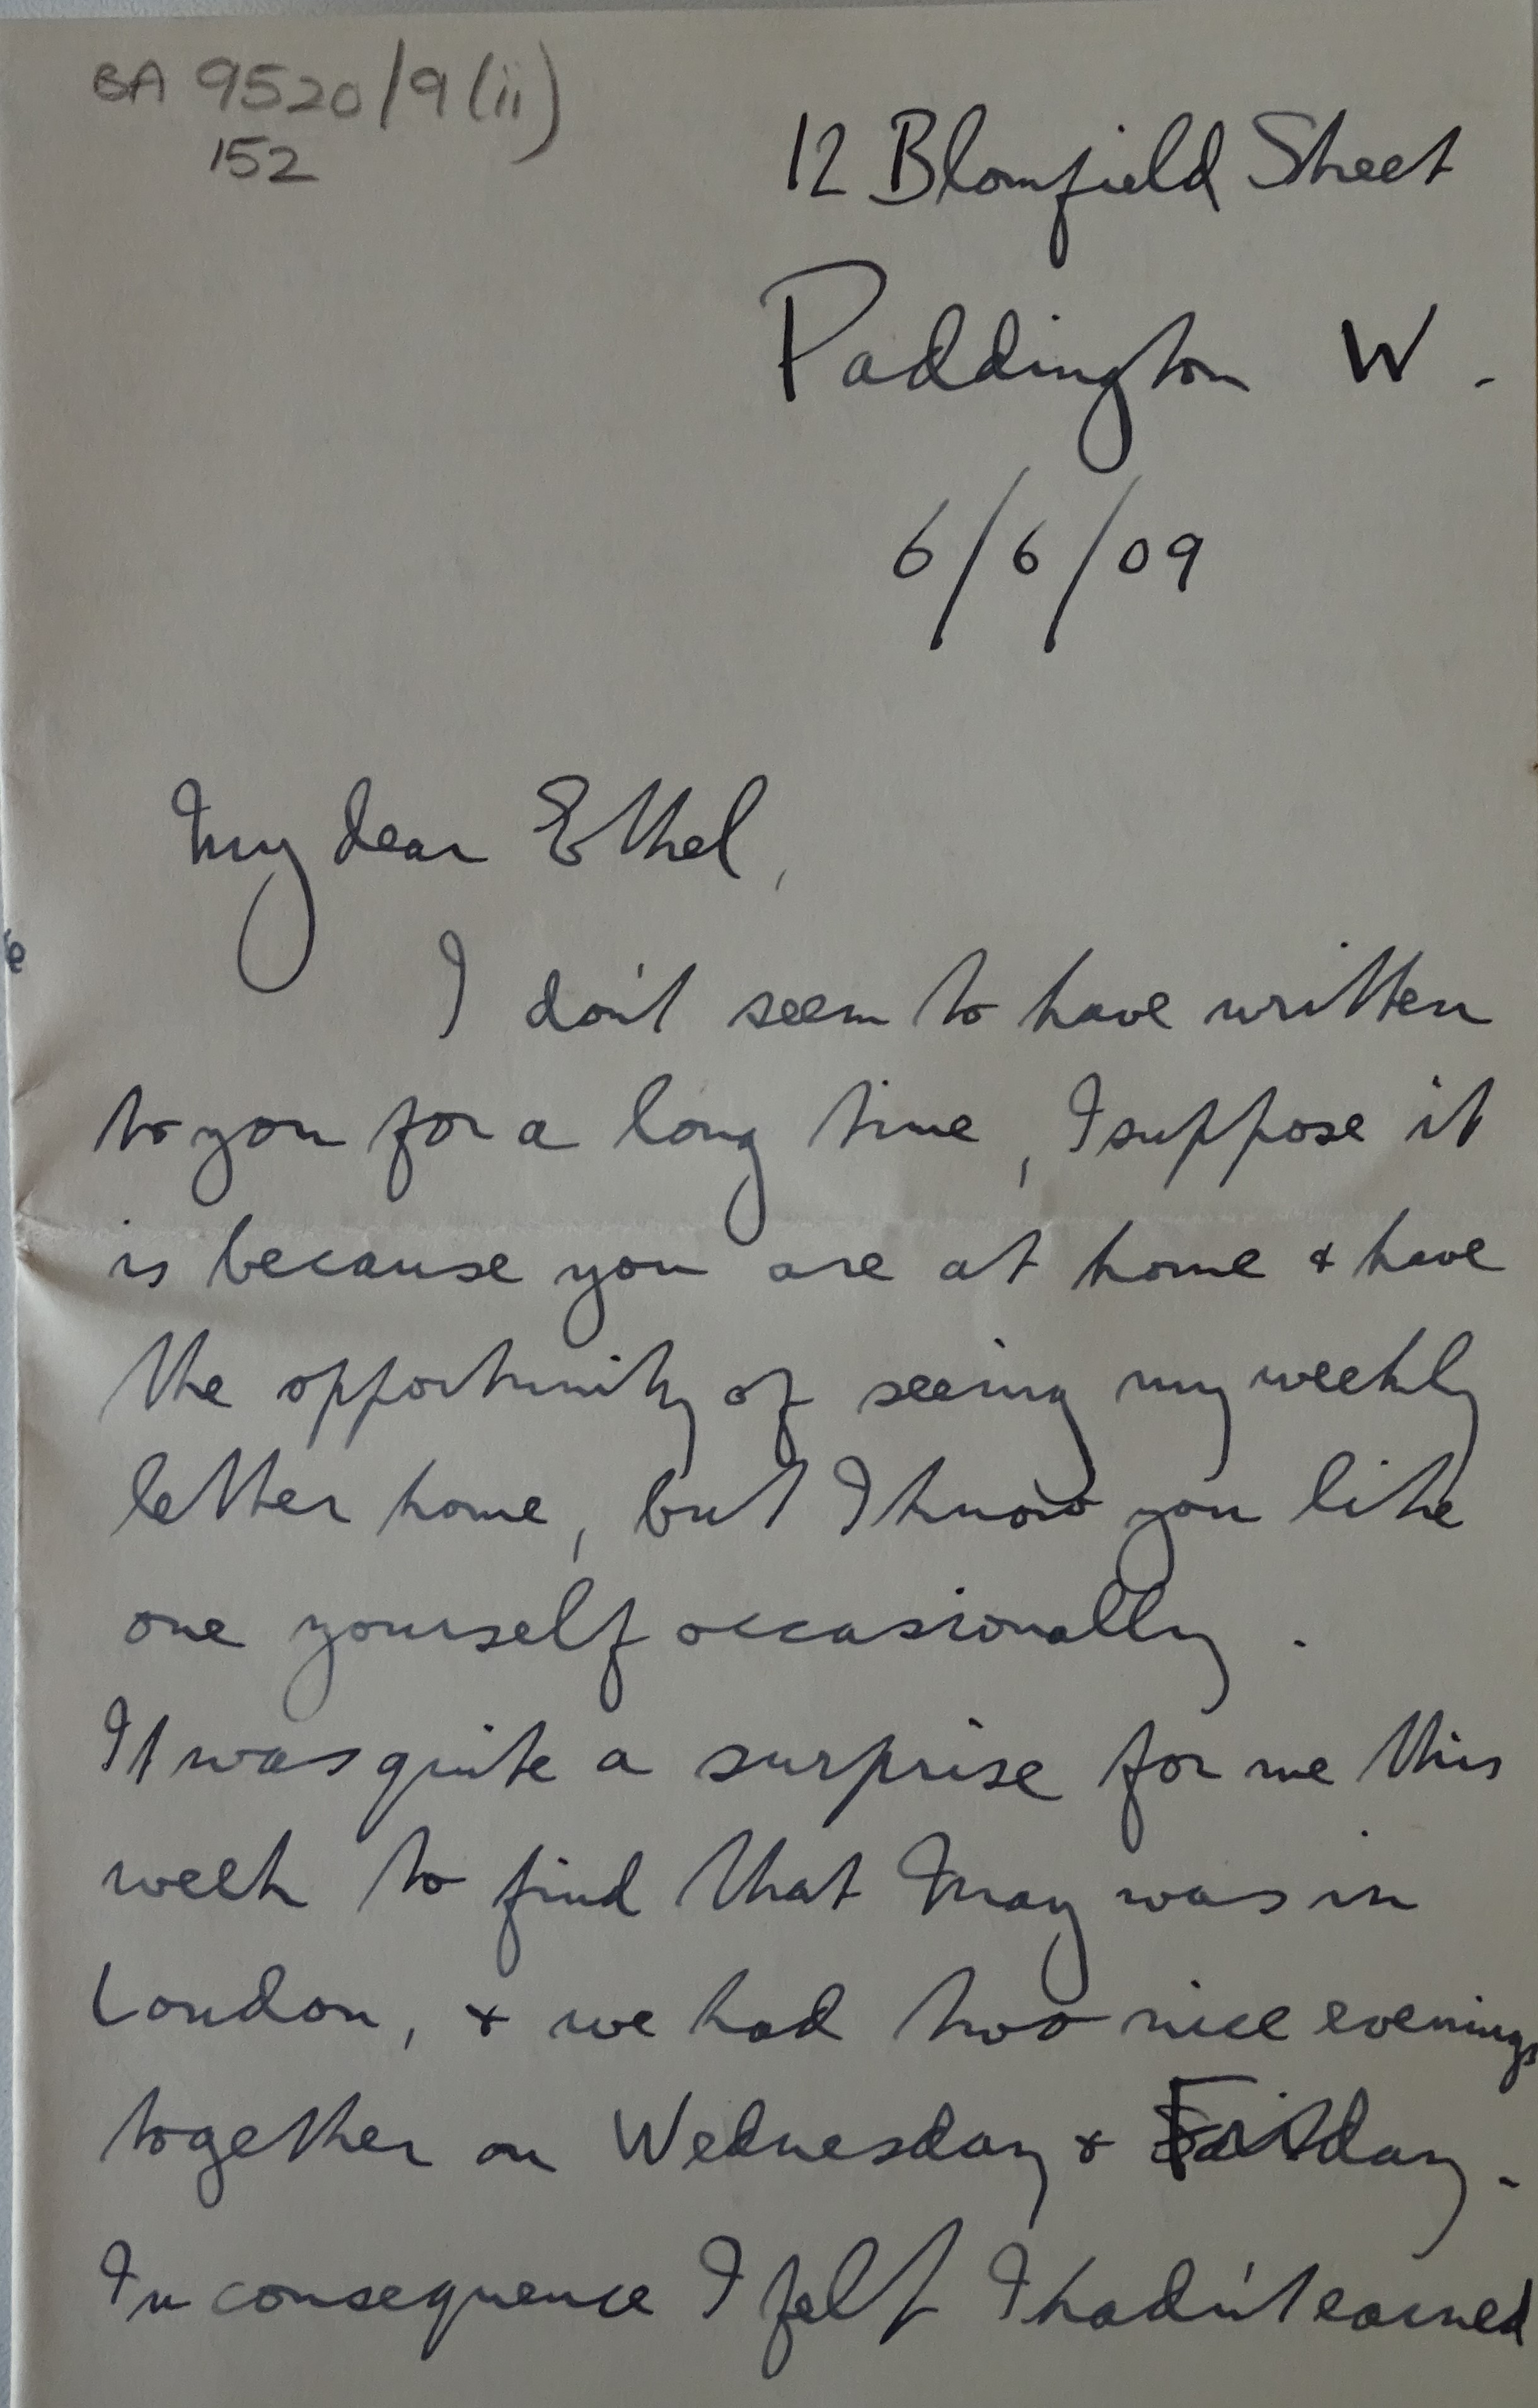 BA 9520/9(ii)
152
12 Blomfield Street
Paddington W.
6/6/09
My dear Ethel,
I don't seem to have written
to you for a long time, I suppose it
is because you are at home & have
the opportunity of seeing my weekly
letter home, but I know you like
one yourself occasionally.
It was quite a surprise for me this
week to find that May was in
London, & we had two nice evenings
together on Wednesday & Friday.
In consequence I felt I hadn't earned